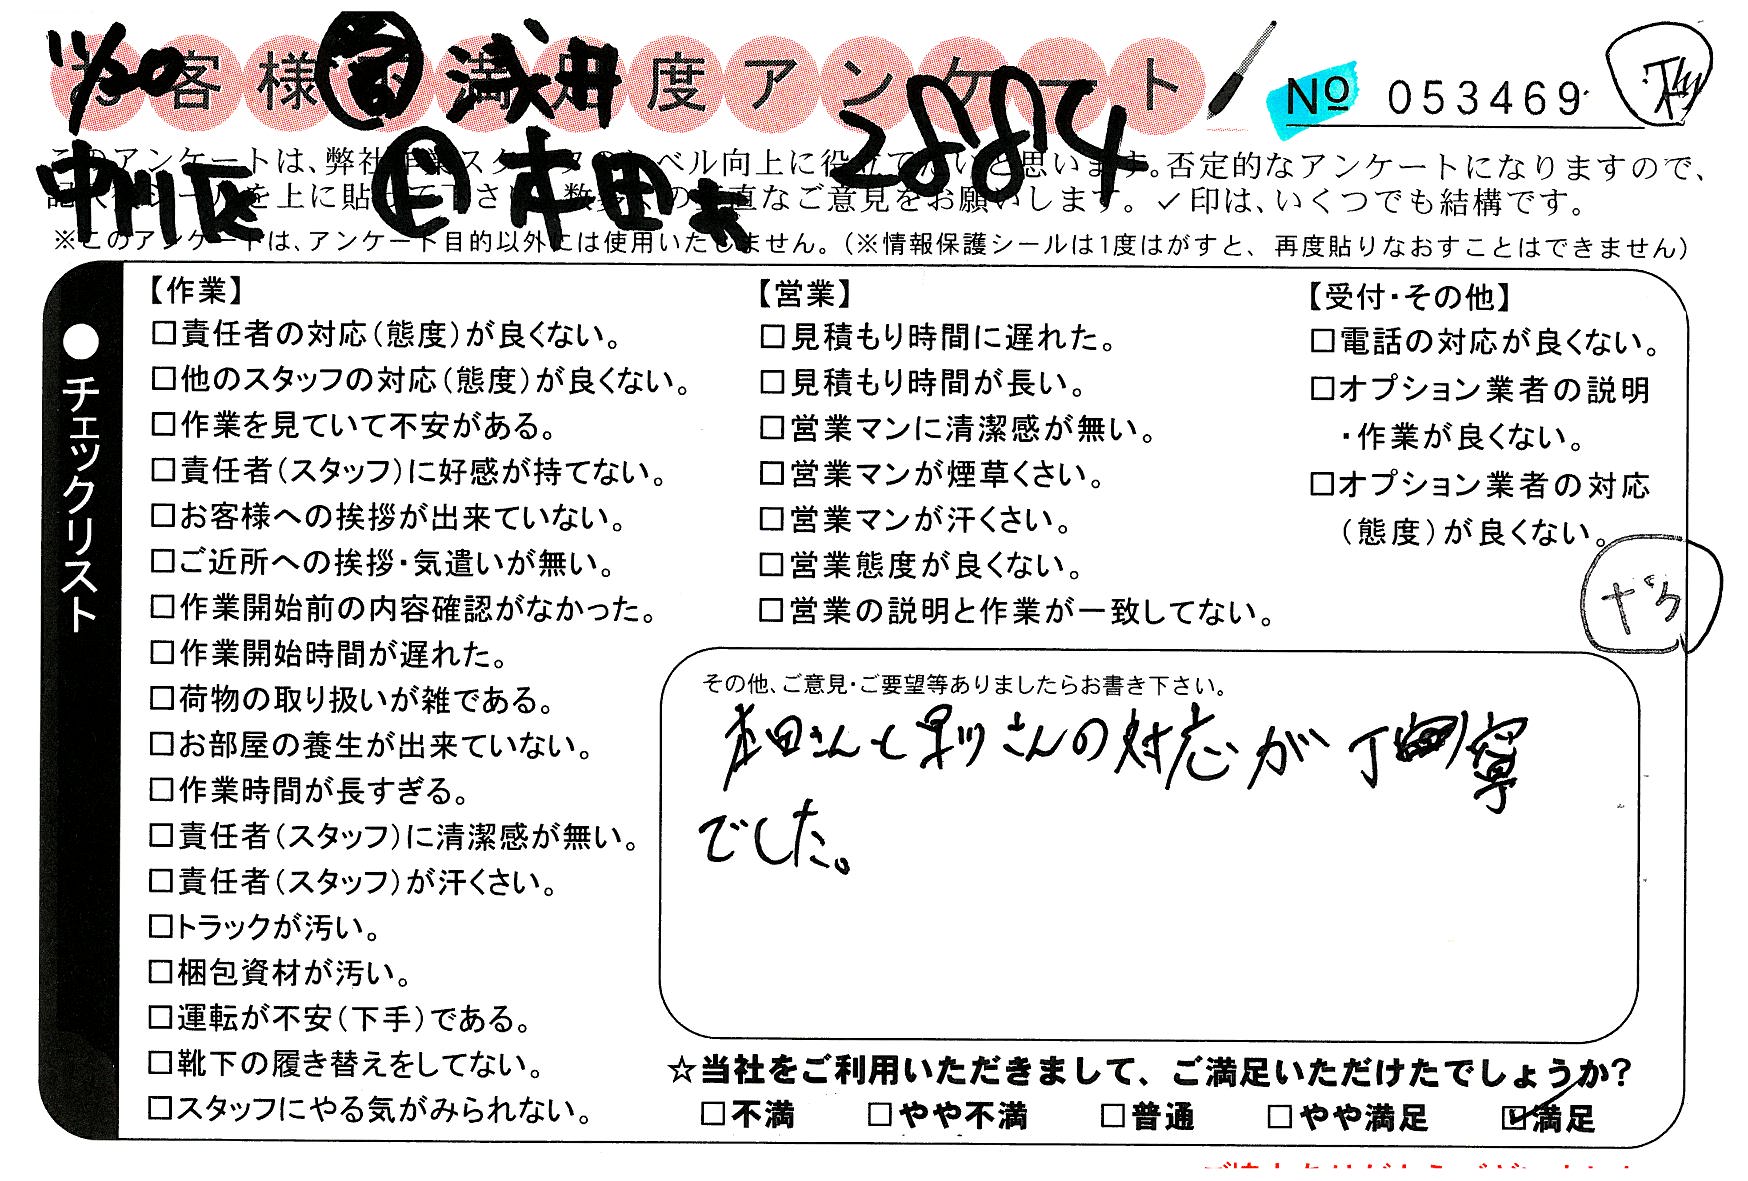 お客様不満足度アンケート
No 053469
11/20 営 浅井 2884
中川区 上 本田
このアンケートは、弊社作業スタッフのレベル向上に役立てたいと思います。否定的なアンケートになりますので、
を上に貼って下さい。数多くの正直なご意見をお願いします。✓印は、いくつでも結構です。
※このアンケートは、アンケート目的以外には使用いたしません。(※情報保護シールは1度はがすと、再度貼りなおすことはできません)
●チェックリスト
【作業】
□責任者の対応(態度)が良くない。
□他のスタッフの対応(態度)が良くない。
□作業を見ていて不安がある。
□責任者(スタッフ)に好感が持てない。
□お客様への挨拶が出来ていない。
□ご近所への挨拶・気遣いが無い。
□作業開始前の内容確認がなかった。
□作業開始時間が遅れた。
□荷物の取り扱いが雑である。
□お部屋の養生が出来ていない。
□作業時間が長すぎる。
□責任者(スタッフ)に清潔感が無い。
□責任者(スタッフ)が汗くさい。
□トラックが汚い。
□梱包資材が汚い。
□運転が不安(下手)である。
□靴下の履き替えをしてない。
□スタッフにやる気がみられない。
【営業】
□見積もり時間に遅れた。
□見積もり時間が長い。
□営業マンに清潔感が無い。
□営業マンが煙草くさい。
□営業マンが汗くさい。
□営業態度が良くない。
□営業の説明と作業が一致してない。
【受付・その他】
□電話の対応が良くない。
□オプション業者の説明
・作業が良くない。
□オプション業者の対応
(態度)が良くない。
その他、ご意見・ご要望等ありましたらお書き下さい。
本田さんと早川さんの対応が丁寧
でした。
☆当社をご利用いただきまして、ご満足いただけたでしょうか?
□不満 □やや不満 □普通 □やや満足 ☑満足